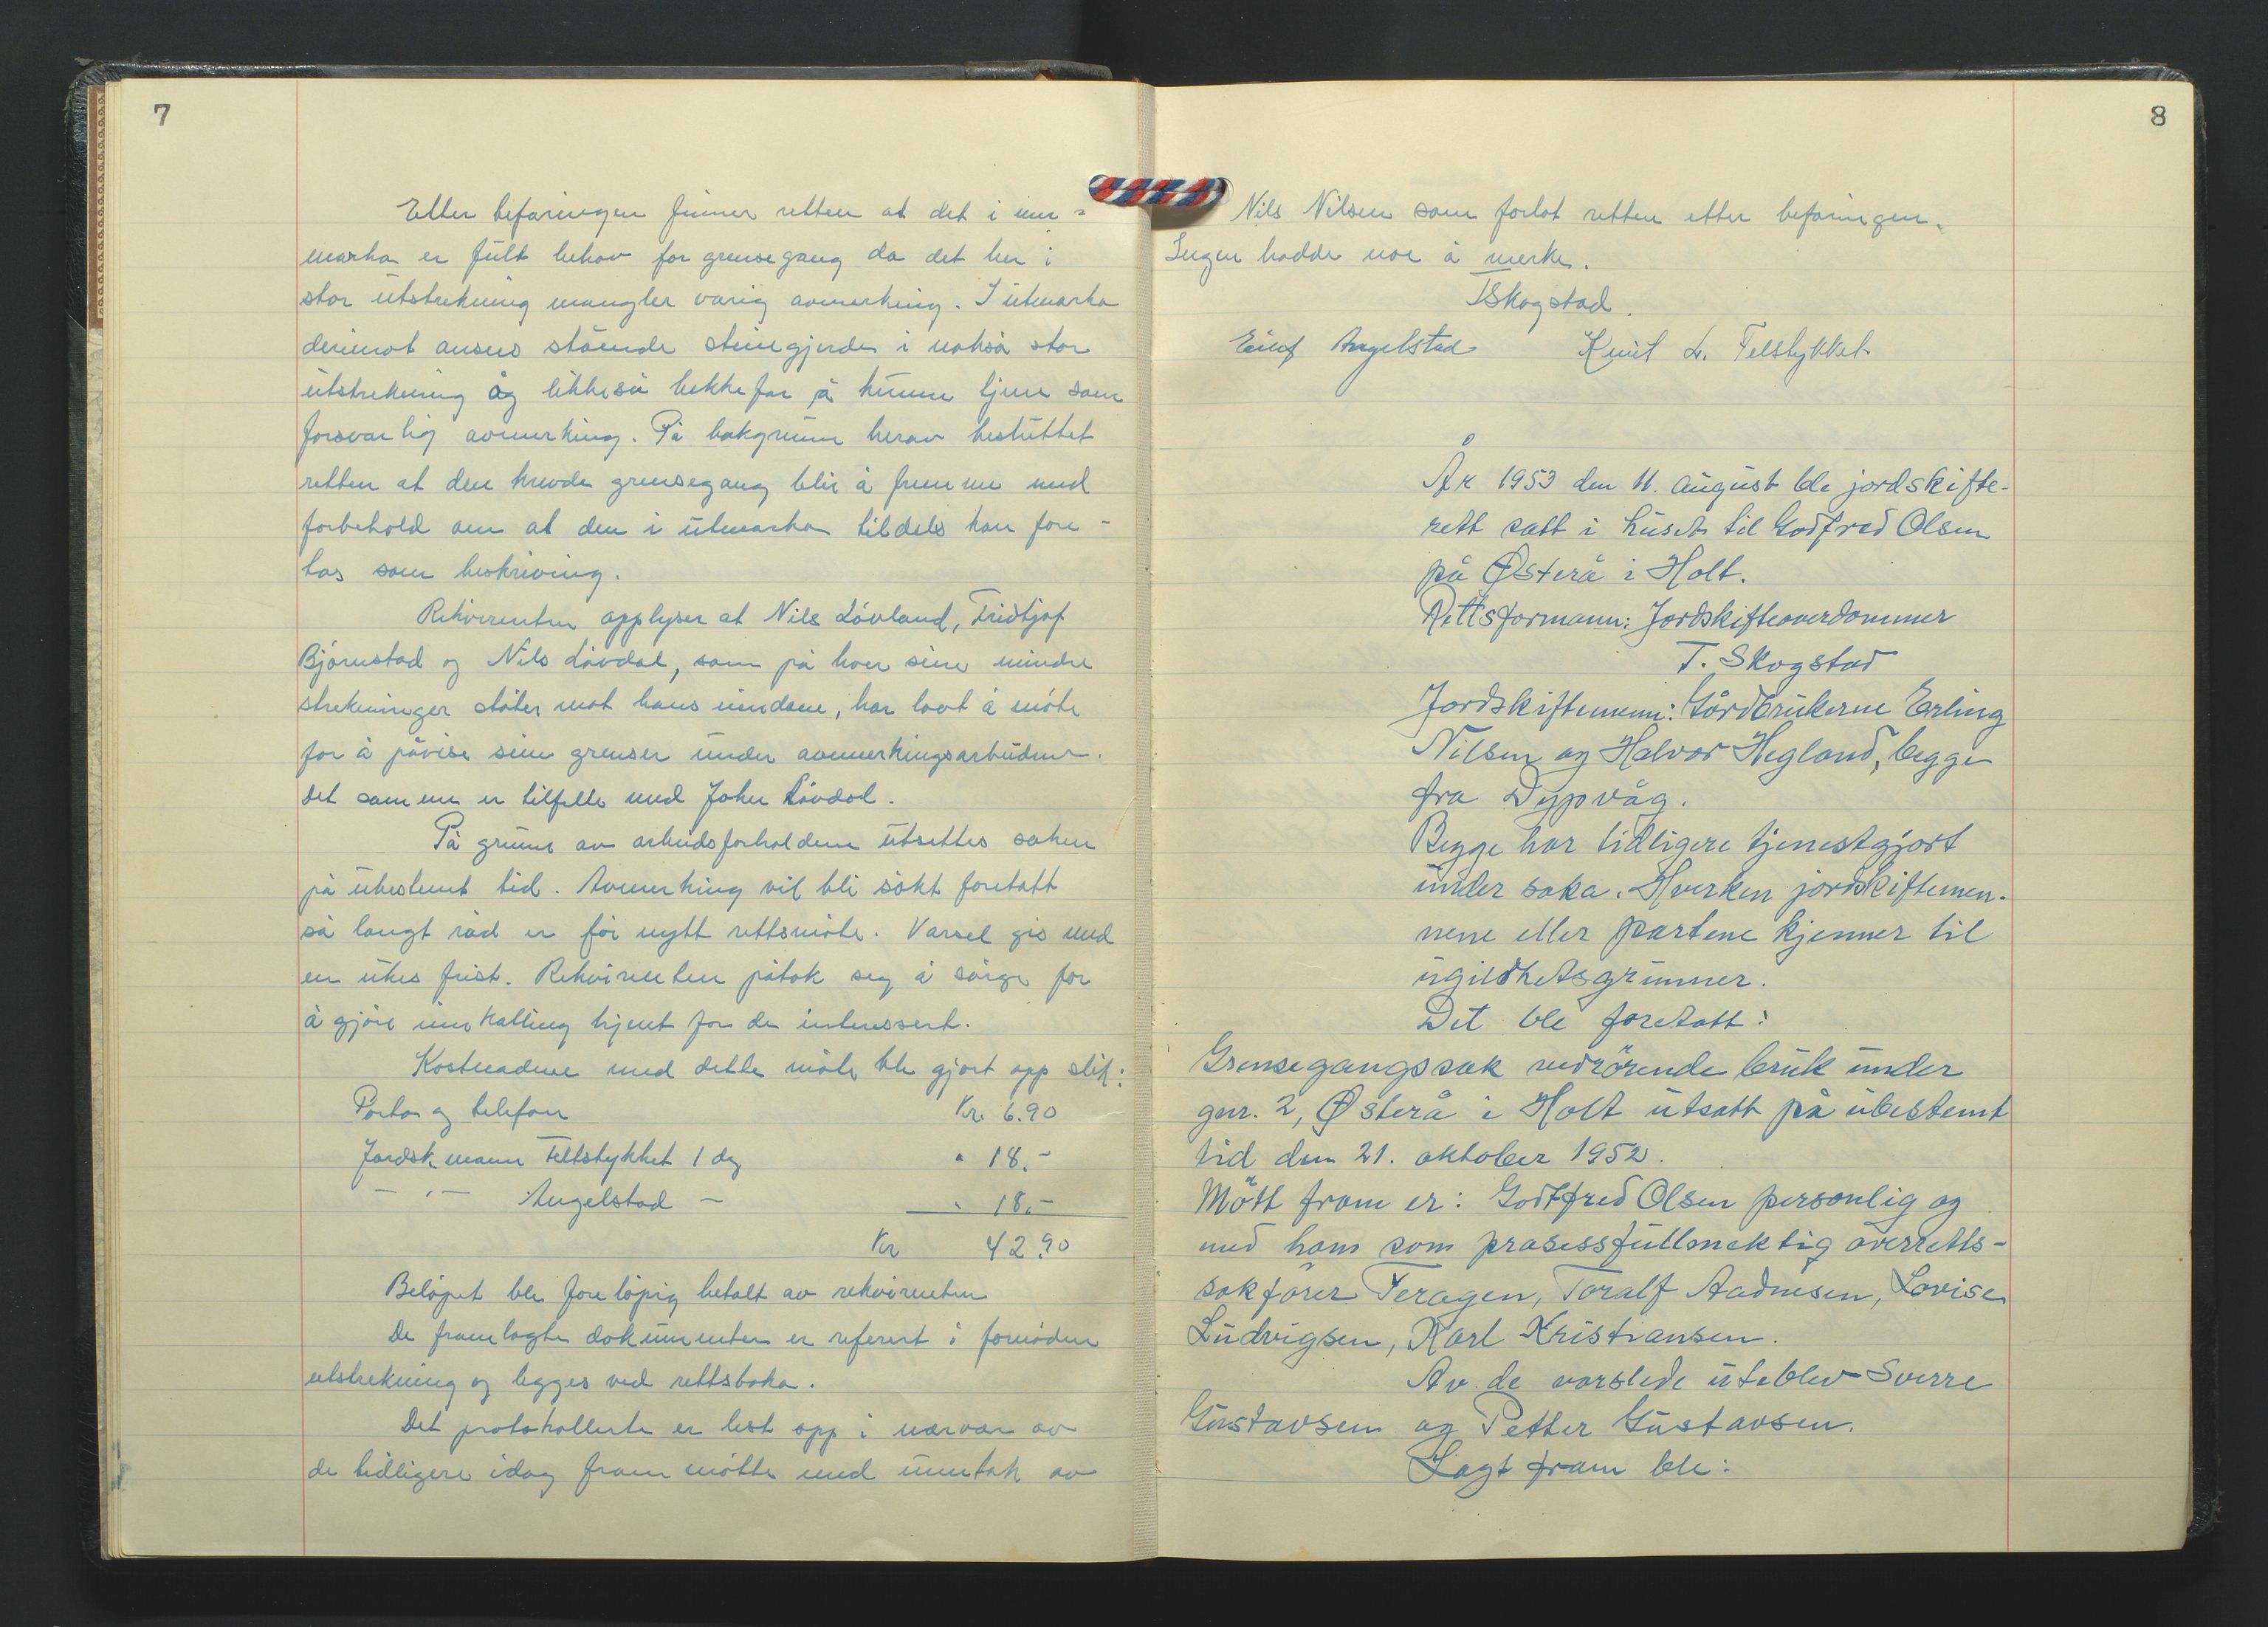 7
Etter befaringen finner retten at det i inn=
marka er fullt behov for grensegang da det her i
stor utstrekning mangler varig avmerking. I utmarka
derimot ansees stående steingjerder i nokså stor
utstrekning og likkeså bekkefar å kunne tjene som
forsvarlig avmerking. På bakgrunn herav besluttet
retten at den krevde grensegang blir å fremme med
forbehold om at den i utmarka tildels kan fore-
tas som beskriving.
Rekvirenten opplyser at Nils Lövland, Fridtjof
Björnstad og Nils Lövdal, som på hver sine mindre
strekninger stöter mot hans eiendom, har lovt å möte
for å påvise sine grenser under avmerkingsarbeidene.
Det samme er tilfelle med John Lövdal.
På grunn av arbeidsforholdene utsettes saken
på ubestemt tid. Avmerking vil bli sökt foretatt
så langt råd er för nytt rettsmöte. Varsel gis med
en ukes frist. Rekvirenten påtok seg å sörge for
å gjöre innkalling kjent for de interessert.
Kostnadene med dette möte ble gjort opp slik:
Porto og telefon Kr. 6.90
Jordsk.mann Feltstykket 1 dag " 18.-
- " - Angelstad - " 18.-
Kr 42.90
Belöpet ble forelöpig betalt av rekvirenten
De framlagte dokumenter er referert i fornöden
utstrekning og legges ved rettsboka.
Det protokollerte er lest opp i nærvær av
de tidligere idag fram mötte med unntak av
8
Nils Nilsen som forlot retten etter befaringen.
Ingen hadde noe å merke.
TSkogstad.
Einf Angelstad Knut L. Felstykket
År 1953 den 11. august ble jordskifte-
rett satt i huset til Godtfred Olsen
på Østerå i Holt.
Rettsformann: Jordskifteoverdommer
T. Skogstad
Jordskiftemenn: Gårdbrukerne Erling
Nilsen og Halvor Hegland, begge
fra Dypvåg.
Begge har tidligere tjenestgjort
under saka. Hverken jordskiftemen-
nene eller partene kjenner til
ugildhetsgrunner.
Det ble foretatt:
Grensegangssak vedrörende bruk under
gnr. 2, Østerå i Holt utsatt på ubestemt
tid den 21. oktober 1952.
Mött fram er: Godtfred Olsen personlig og
med ham som prosessfullmektig overretts-
sakförer Feragen, Toralf Aadnesen, Lovise
Ludvigsen, Karl Kristiansen.
Av de varslede uteblev Sverre
Gustavsen og Petter Gustavsen.
Lagt fram ble: